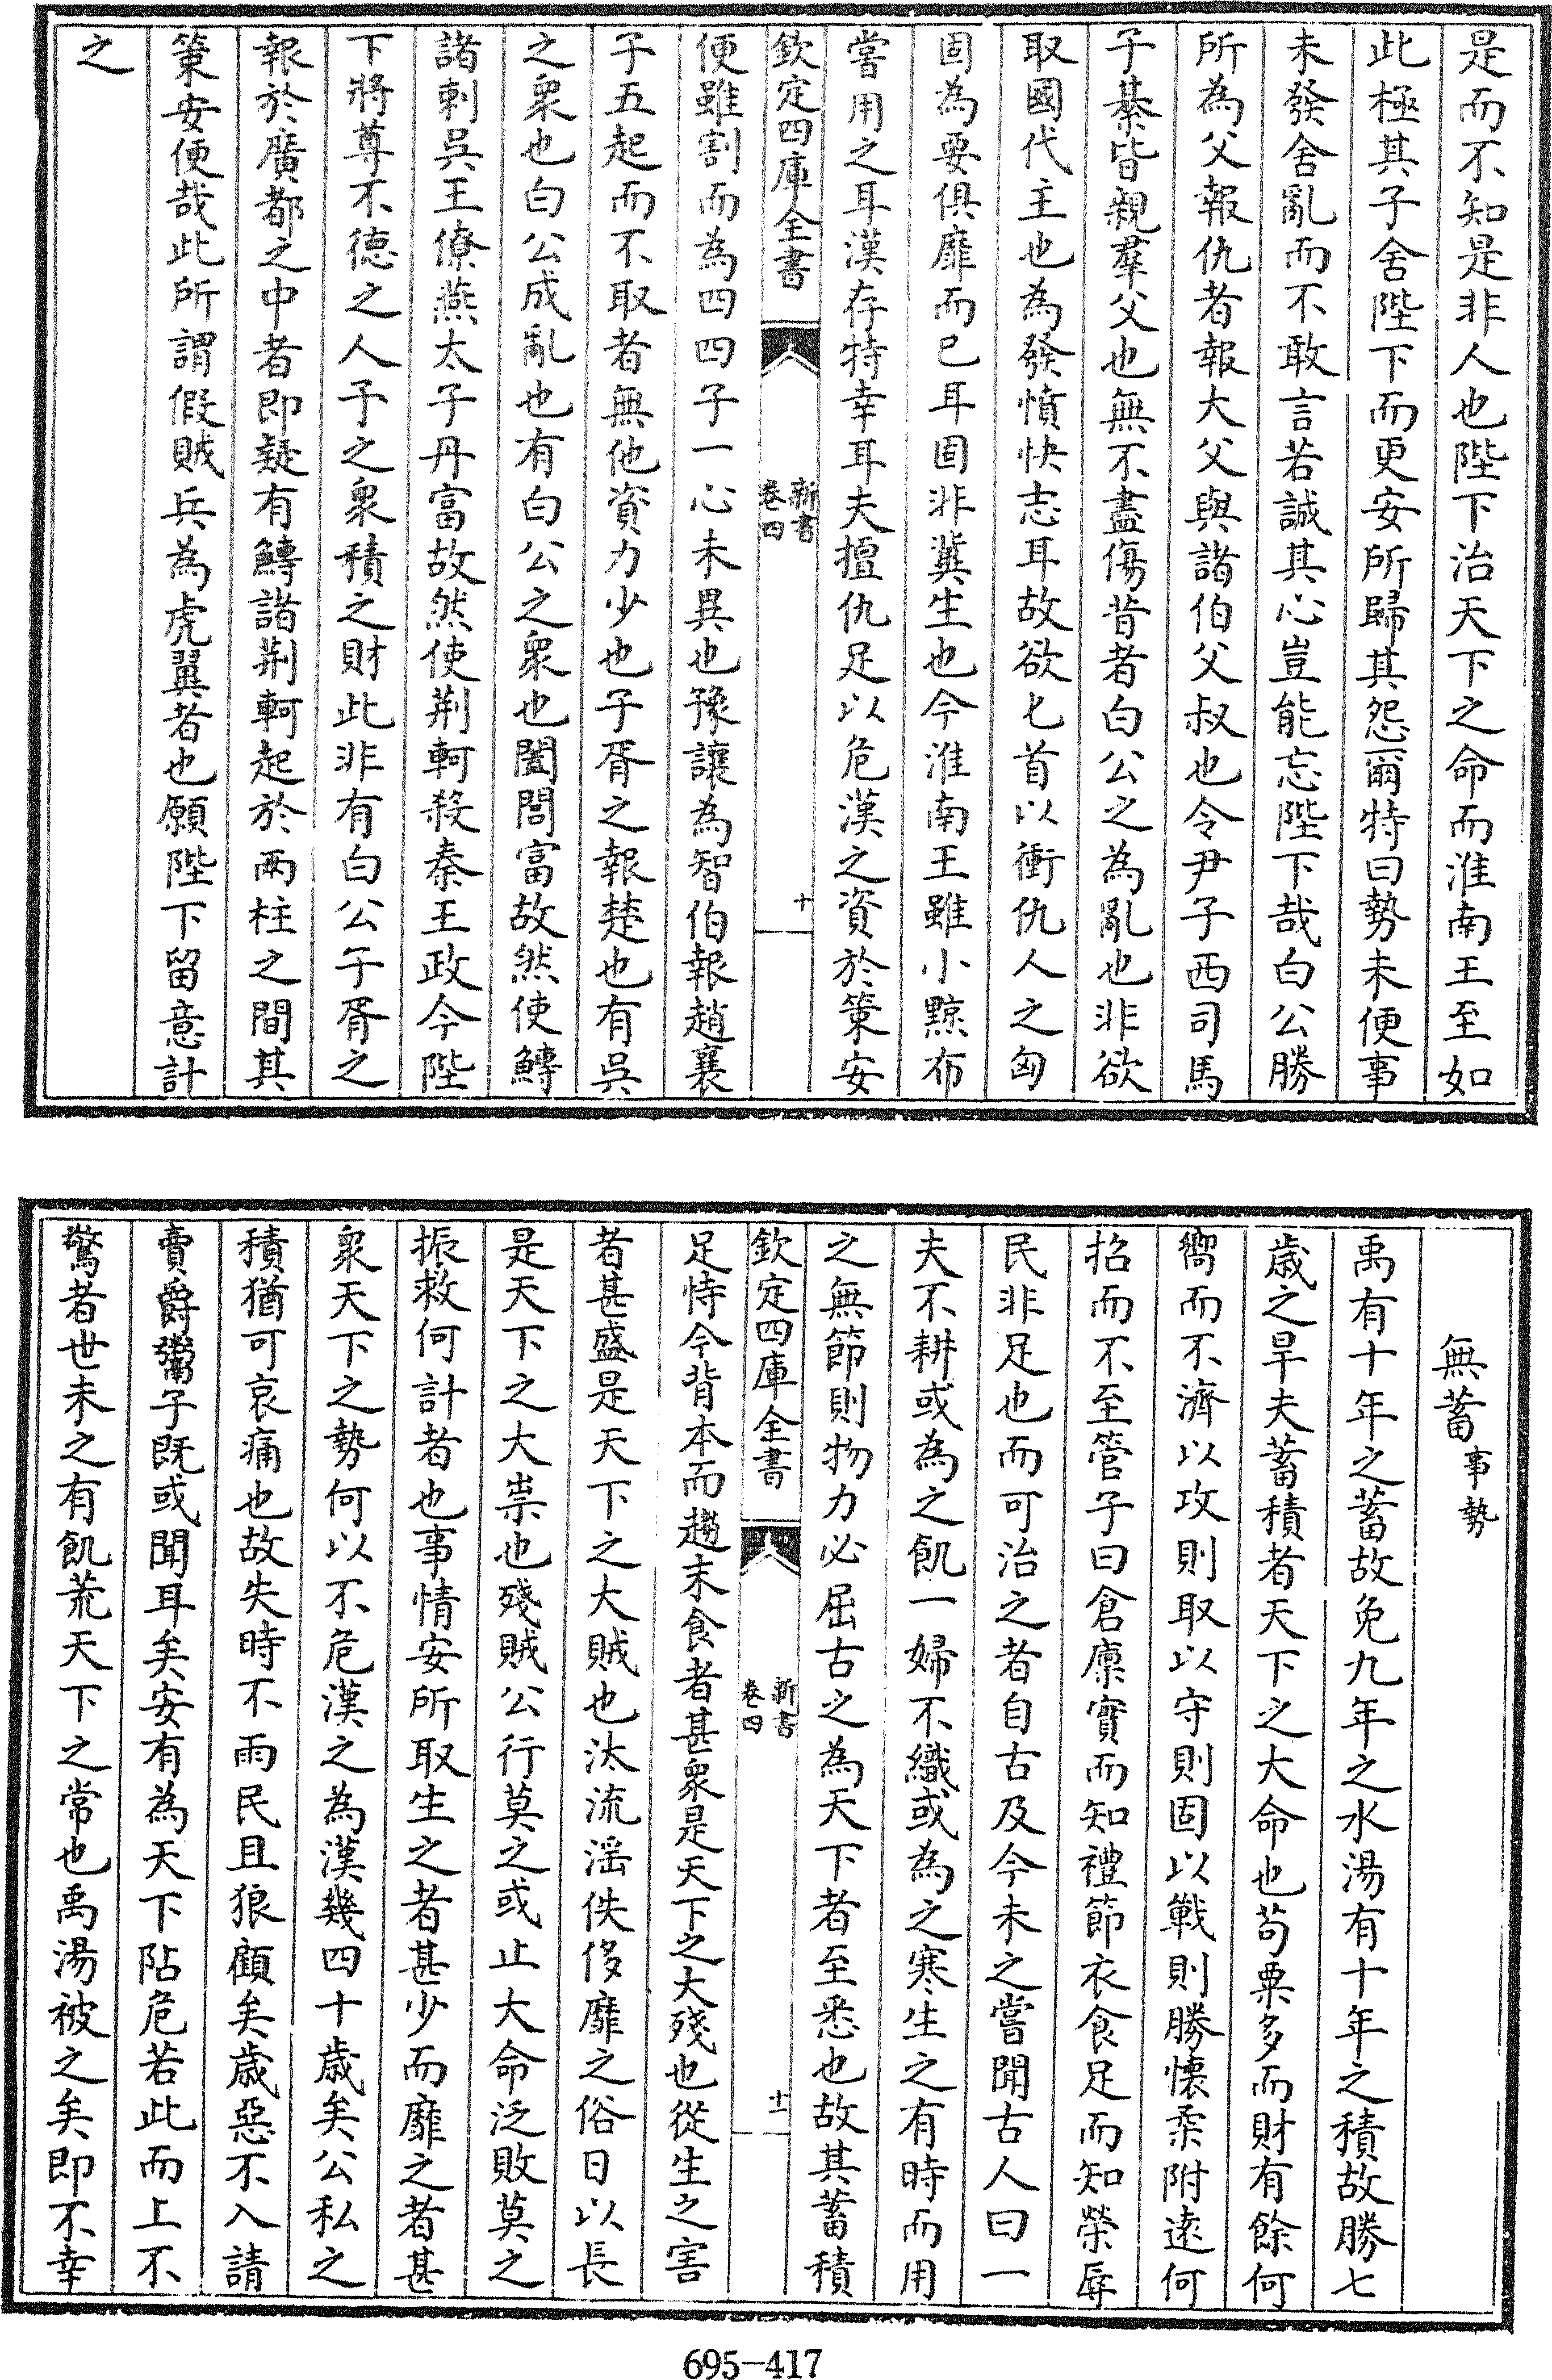 是而不知是非人也陛下治天下之命而淮南王至如
此極其子舍陛下而更安所歸其怨爾特曰勢未便事
未發舍亂而不敢言若誠其心豈能忘陛下哉白公勝
所為父報仇者報大父與諸伯父叔也令尹子西司馬
子綦皆親羣父也無不盡傷昔者白公之為亂也非欲
取國代主也為發憤快志耳故欲匕首以衝仇人之匈
固為要俱靡而已耳固非冀生也今淮南王雖小黥布
嘗用之耳漢存特幸耳夫擅仇足以危漢之資於策安
欽定四庫全書
新書
卷四
十
便雖割而為四四子一心未異也豫讓為智伯報趙襄
子五起而不取者無他資力少也子胥之報楚也有吳
之衆也白公成亂也有白公之衆也闔閭富故然使鱄
諸刺吳王僚燕太子丹富故然使荆軻殺秦王政今陛
下將尊不德之人予之衆積之財此非有白公子胥之
報於廣都之中者即疑有鱄諸荆軻起於兩柱之間其
策安便哉此所謂假賊兵為虎翼者也願陛下留意計
之
無蓄事勢
禹有十年之蓄故免九年之水湯有十年之積故勝七
歲之旱夫蓄積者天下之大命也苟粟多而財有餘何
嚮而不濟以攻則取以守則固以戰則勝懷柔附遠何
招而不至管子曰倉廩實而知禮節衣食足而知榮辱
民非足也而可治之者自古及今未之嘗聞古人曰一
夫不耕或為之飢一婦不織或為之寒生之有時而用
之無節則物力必屈古之為天下者至悉也故其蓄積
欽定四庫全書
新書
卷四
十一
足恃今背本而趨末食者甚衆是天下之大殘也從生之害
者甚盛是天下之大賊也汰流淫佚侈靡之俗日以長
是天下之大祟也殘賊公行莫之或止大命泛敗莫之
振救何計者也事情安所取生之者甚少而靡之者甚
衆天下之勢何以不危漢之為漢幾四十歲矣公私之
積猶可哀痛也故失時不雨民且狼顧矣歲惡不入請
賣爵鬻子既或聞耳矣安有為天下阽危若此而上不
驚者世未之有飢荒天下之常也禹湯被之矣即不幸
695-417